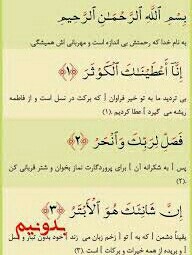 بِسْمِ اللَّهِ الرَّحْمَٰنِ الرَّحِيمِ
به نام خدا که رحمتش بی اندازه است و مهربانی اش همیشگی.
إِنَّا أَعْطَيْنَاكَ الْكَوْثَرَ ﴿١﴾
بی تردید ما به تو خیر فراوان [ که برکت در نسل است و از فاطمه
ریشه می گیرد ] عطا کردیم. (۱)
فَصَلِّ لِرَبِّكَ وَانْحَرْ ﴿٢﴾
پس [ به شکرانه آن ] برای پروردگارت نماز بخوان و شتر قربانی کن
(۲).
إِنَّ شَانِئَكَ هُوَ الْأَبْتَرُ ﴿٣﴾
بدونیم
یقیناً دشمن [ که به ] تو [ زخم زبان می زند ] خود بدون تبار و نسل
و بریده از همه خیرات و برکات است. (۳)